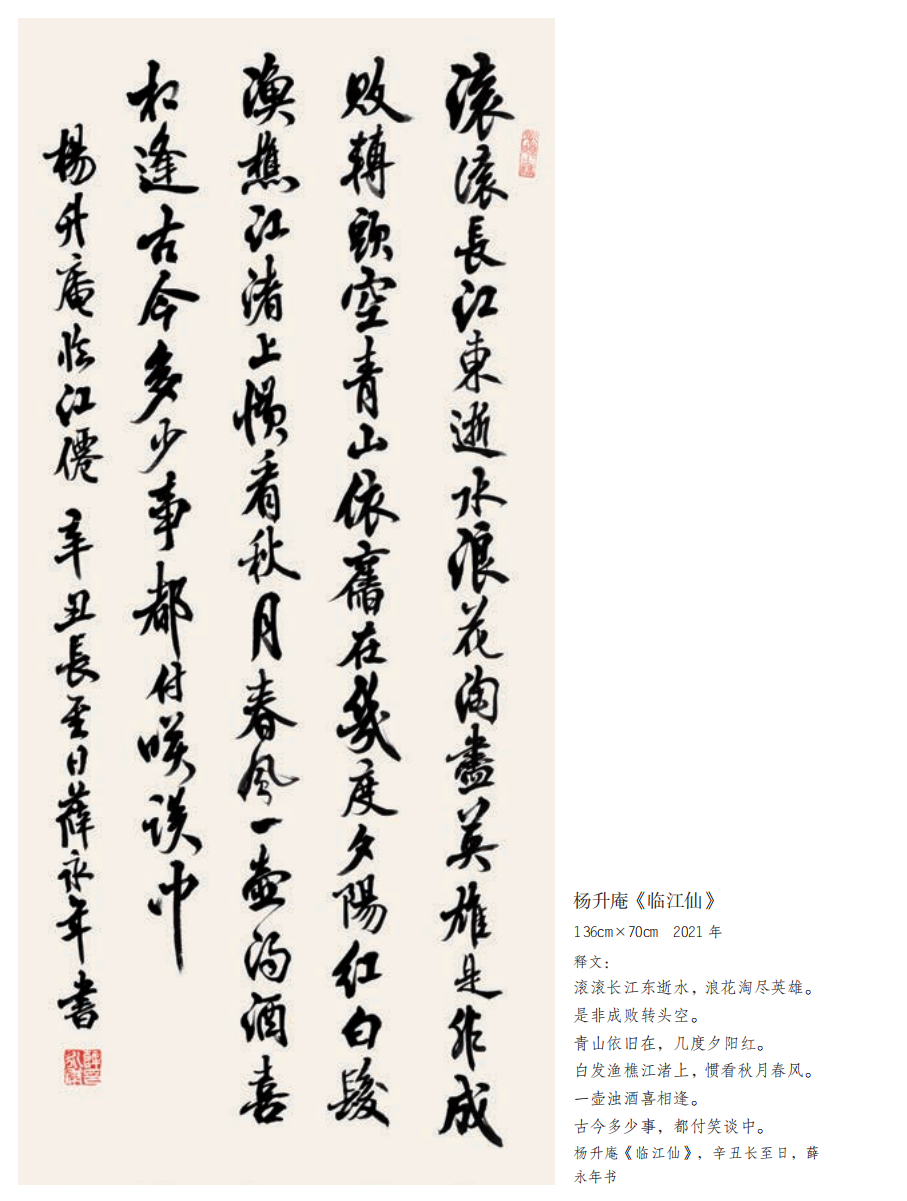 滚滚長江東逝水浪花淘盡英雄是非成
敗轉頭空青山依舊在幾度夕陽紅白髮
漁樵江渚上慣看秋月春風一壺濁酒喜
相逢古今多少事都付咲談中
楊升庵臨江僊 辛丑長至日薛永年書
杨升庵《临江仙》
136cm×70cm 2021 年
释文：
滚滚长江东逝水，浪花淘尽英雄。
是非成败转头空。
青山依旧在，几度夕阳红。
白发渔樵江渚上，惯看秋月春风。
一壶浊酒喜相逢。
古今多少事，都付笑谈中。
杨升庵《临江仙》，辛丑长至日，薛
永年书